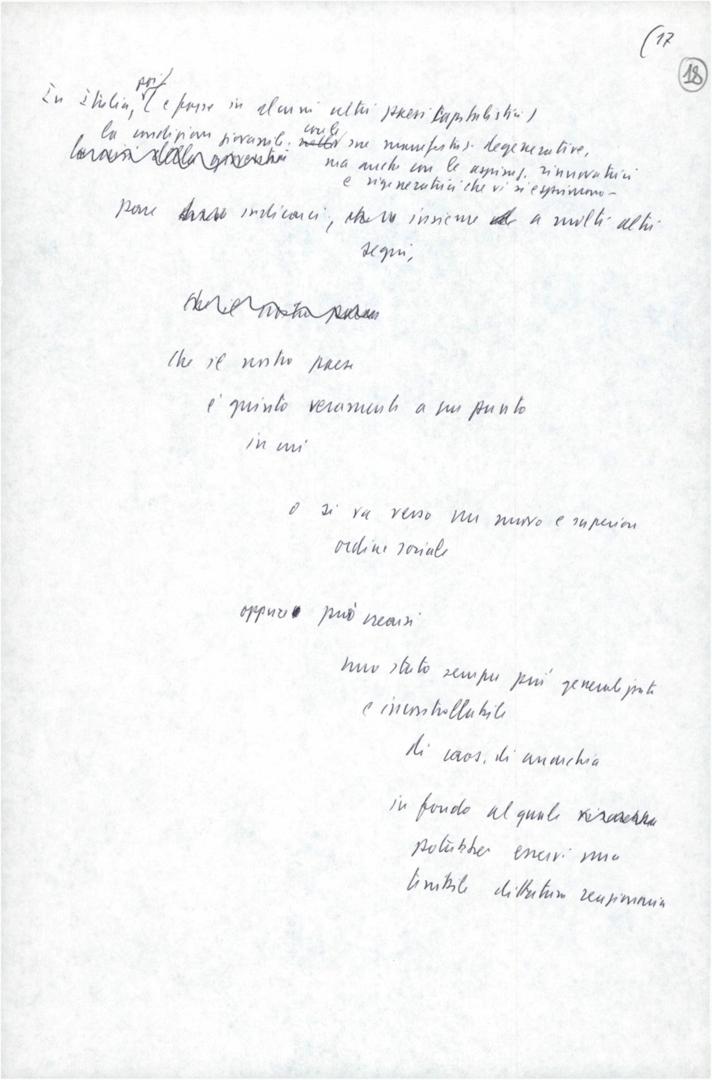 (17
18
poi
In Italia, (e forse in alcuni altri paesi capitalistici)
la condizione giovanile, nelle con le sue manifestaz. degenerative,
la crisi della gioventù ma anche con le aspiraz. rinnovatrici
e rigeneratrici che vi si esprimono-
pare indicarci, insieme a molti altri
segni,
che il nostro paese
che il nostro paese
è giunto veramente a un punto
in cui
o si va verso un nuovo e superiore
ordine sociale
oppure può crearsi
uno stato sempre più generalizzato
e incontrollabile
di caos, di anarchia
in fondo al quale
potrebbe esservi una
terribile dittatura reazionaria